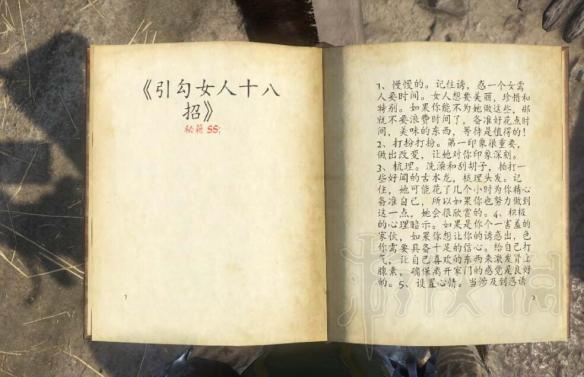 《引勾女人十八
招》
秘籍 SS;
1、慢慢的。记住诱，惑一个女需
人要时间。女人想要美丽，珍惜和
特别。如果你能不为她做这些，那
就不要浪费时间了，备准好花点时
间，美味的东西，等待是值得的！
2、打扮打扮。第一印象很重要，
做出改变，让她对你印象深刻。
3、梳理。洗澡和刮胡子，拍打一
些好闻的古水龙，梳理头发。记
住，她可能花了几个小时为你精心
备准自己，所以如果你也努力做到
这一点，她会很欣赏的。4、积极
的心理暗示。如果是你个一害羞的
家伙，如果你想让你的诱惑出，色
你需要具备十足的信心。给自己打
气，让自己喜欢的东西来激发肾上
腺素，确保离开家门的感觉是良好
的。5、设置心情。当涉及到惑诱